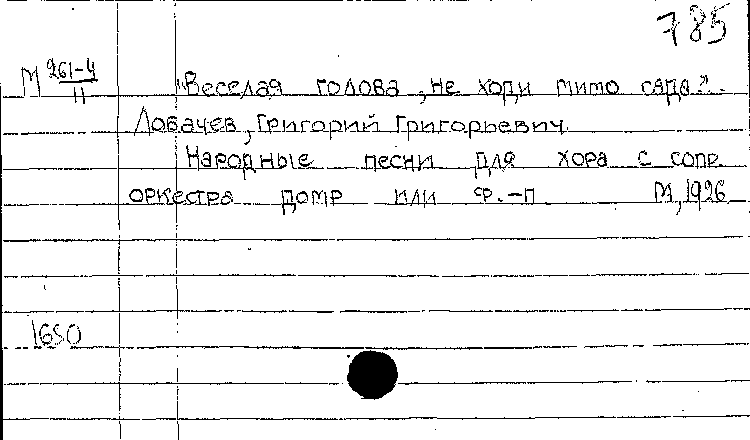 785
М 261-4/11 "Веселая голова, не ходи мимо сада".
Лобачев, Григорий Григорьевич.
Народные песни для хора с сопр.
оркестра домр или ф.-п. М, 1926
1650